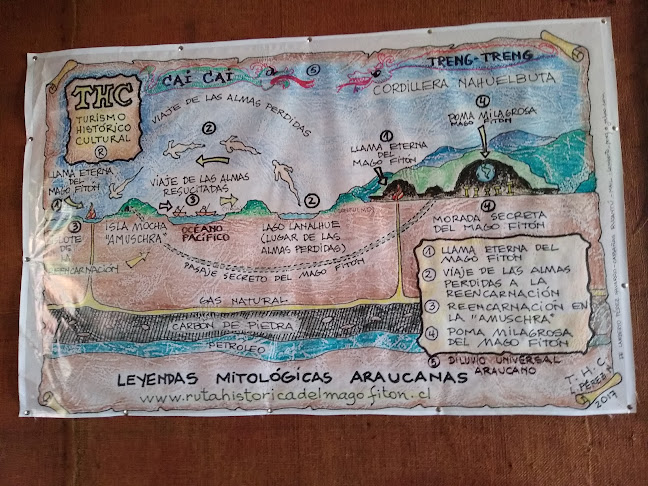 CAI CAI
5
TRENG-TRENG
CORDILLERA NAHUELBUTA
THC
TURISMO
HISTÓRICO
CULTURAL
VIAJE DE LAS ALMAS PERDIDAS
2
4
POMA MILAGROSA
MAGO FITÓN
1
LLAMA ETERNA
DEL
MAGO FITÓN
R
LLAMA ETERNA
DEL
MAGO FITÓN
1
VIAJE DE LAS ALMAS
RESUCITADAS
3
2
3
ISLA MOCHA
"AMUSCHRA"
OCEANO
PACÍFICO
LAGO LANALHUE
(LUGAR DE LAS
ALMAS PERDIDAS)
4
MORADA SECRETA
DEL MAGO FITÓN
PASAJE SECRETO DEL MAGO FITÓN
GAS NATURAL
CARBON DE PIEDRA
PETROLEO
1 LLAMA ETERNA DEL
MAGO FITÓN
2 VIAJE DE LAS ALMAS
PERDIDAS A LA
REENCARNACIÓN
3 REENCARNACIÓN EN
LA "AMUSCHRA"
4 POMA MILAGROSA
DEL MAGO FITÓN
5 DILUVIO UNIVERSAL
ARAUCANO
LEYENDAS MITOLÓGICAS ARAUCANAS
www.rutahistoricadelmagofiton.cl
T.H.C
L.PÉREZ
2017